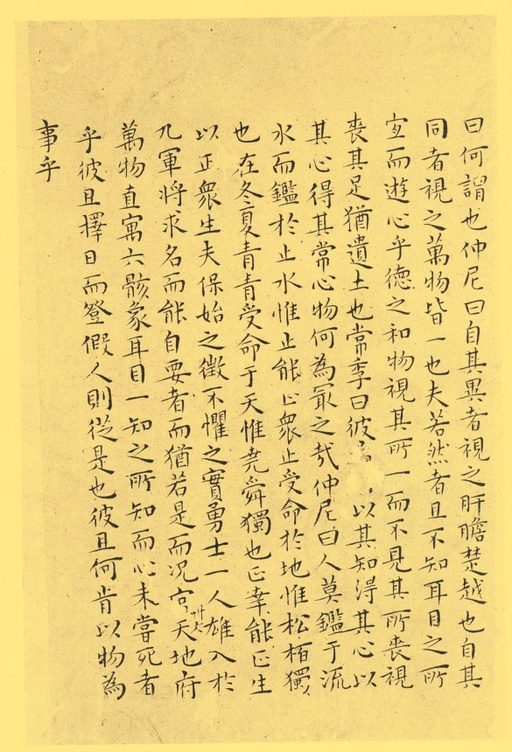 曰何謂也仲尼曰自其異者視之肝膽楚越也自其
同者視之萬物皆一也夫若然者且不知耳目之所
宜而遊心乎德之和物視其所一而不見其所喪視
喪其足猶遺土也常季曰彼為以其知得其心以
其心得其常心物何為冣之㢤仲尼曰人莫鑑于流
水而鑑於止水惟止能止衆止受命於地惟松栢獨
也在冬夏青青受命于天惟堯舜獨也正幸能正生
以正衆生夫保始之徵不懼之實勇士一人雄入於
九軍將求名而能自要者而猶若是而况官天地府
萬物直寓六骸象耳目一知之所知而心未嘗死者
乎彼且擇日而登假人則從是也彼且何肯以物為
事乎